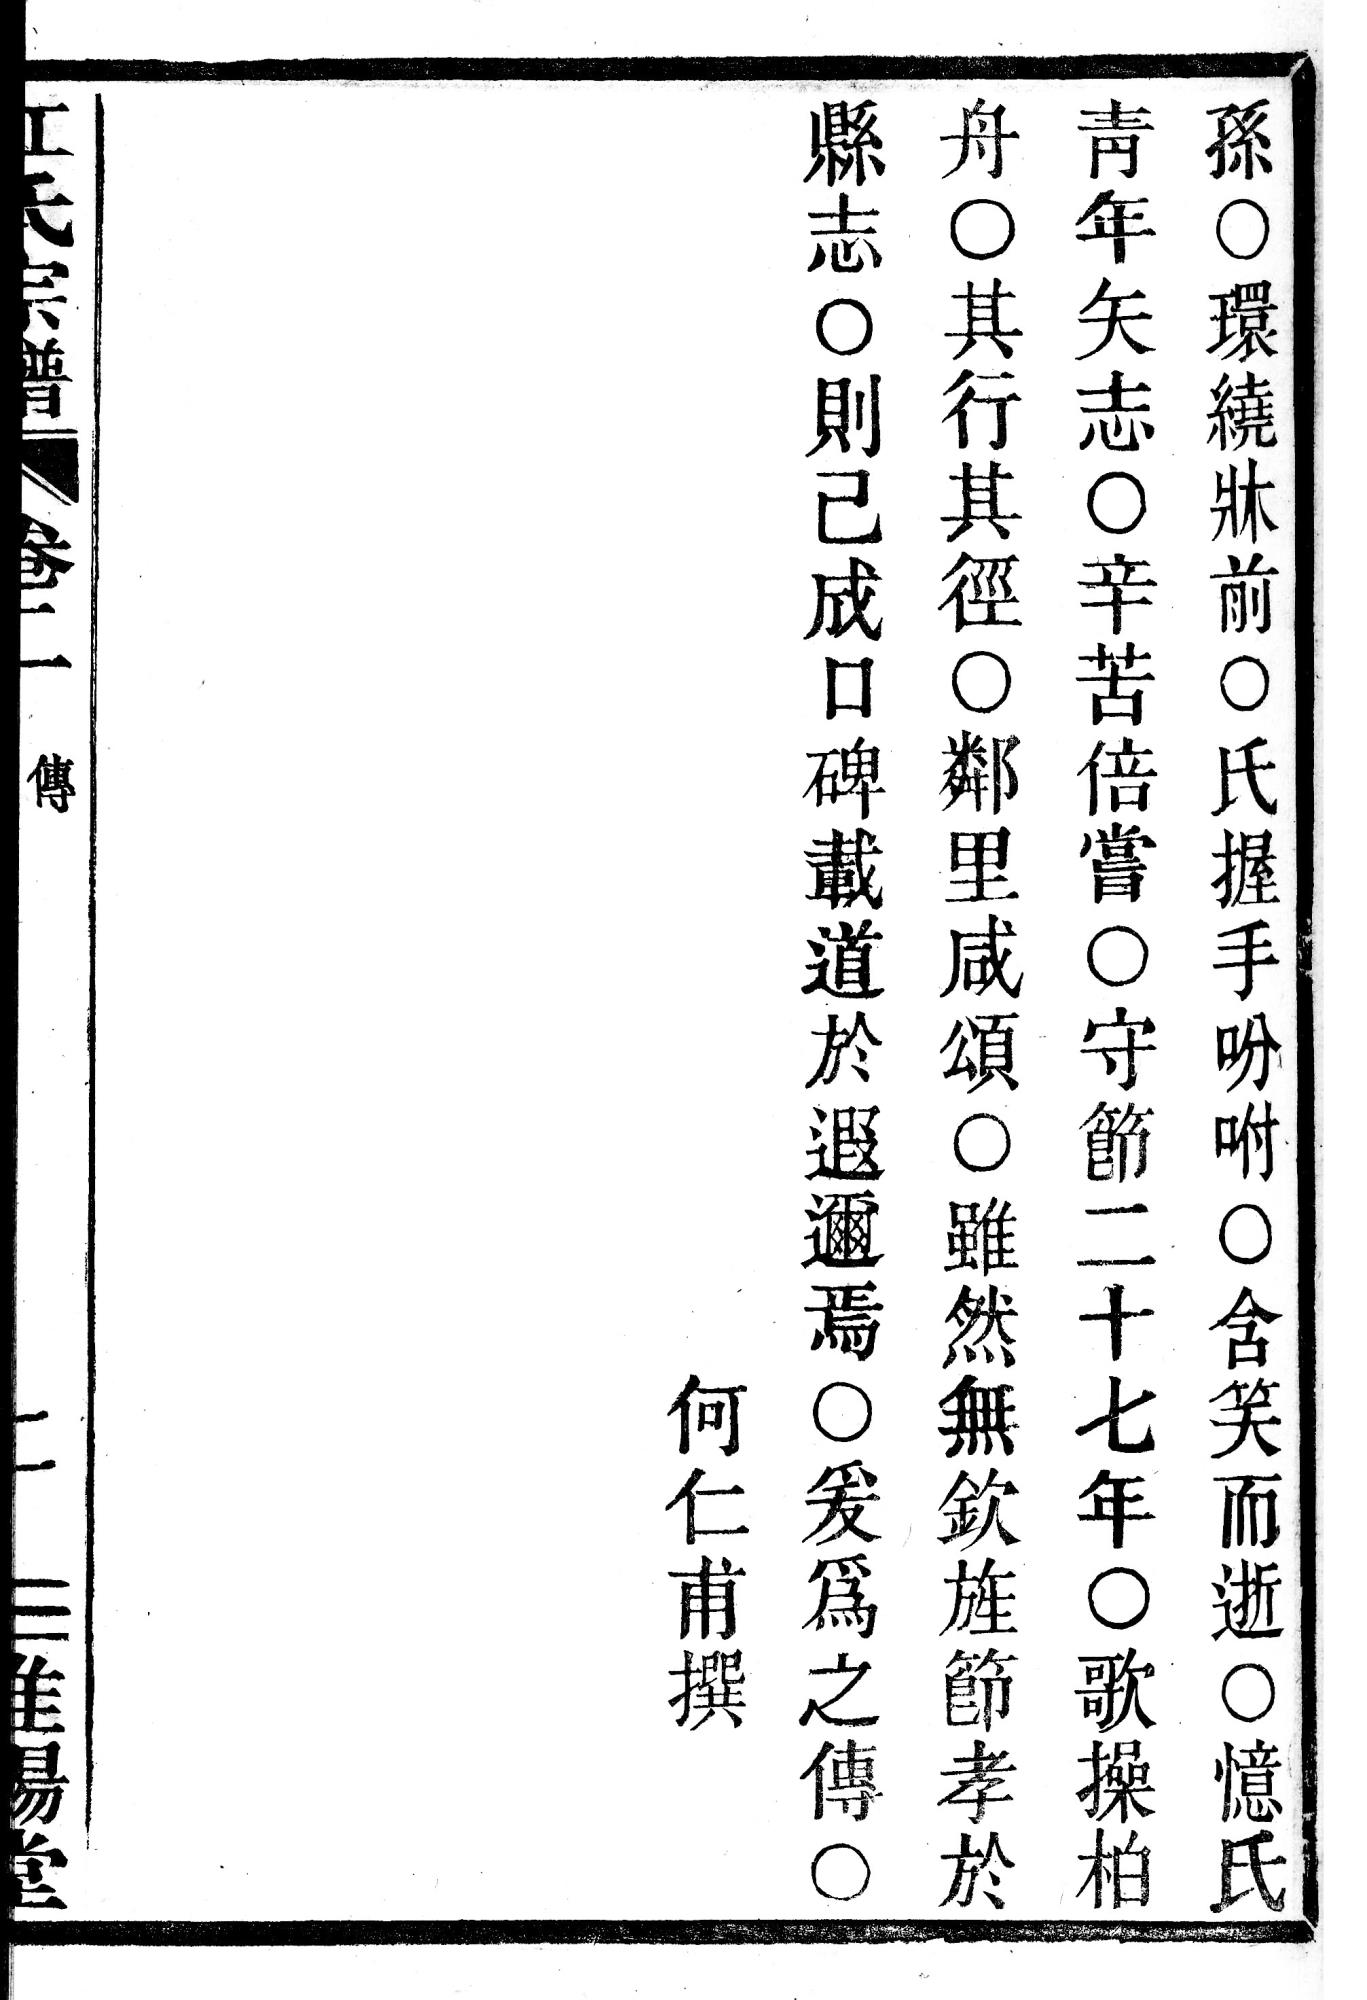 孫○環繞牀前○氏握手吩咐○含笑而逝○憶氏
青年矢志○辛苦倍嘗○守節二十七年○歌操柏
舟○其行其徑○鄰里咸頌○雖然無欽旌節孝於
縣志○則已成口碑載道於遐邇焉○爰爲之傳○
何仁甫撰
江氏宗譜 卷二 傳 二 三 淮陽堂